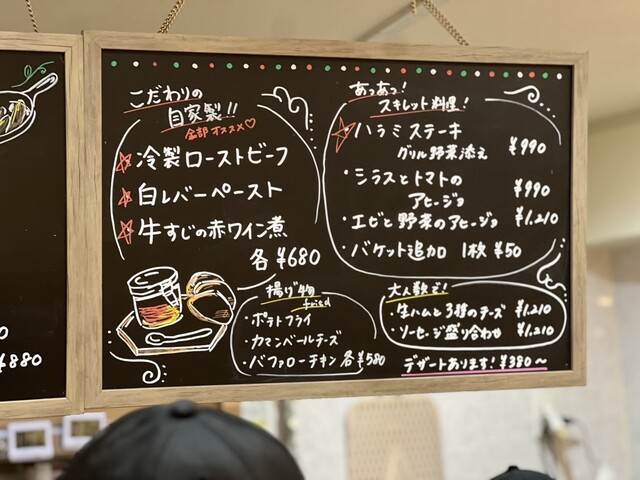 こだわりの
自家製!!
全部オススメ♡
☆冷製ローストビーフ
☆白レバーペースト
☆牛すじの赤ワイン煮
各 ¥680
あっあつ!
スキレット料理!
☆ハラミステーキ
グリル野菜添え ¥990
・シラスとトマトの
アヒージョ ¥990
・エビと野菜のアヒージョ ¥1,210
・バケット追加 1枚 ¥50
揚げ物
fried
・ポテトフライ
・カマンベールチーズ
・バファローチキン 各¥580
大人数で!
・生ハムと3種のチーズ ¥1,210
・ソーセージ盛り合わせ ¥1,210
デザートあります! ¥380〜
¥880